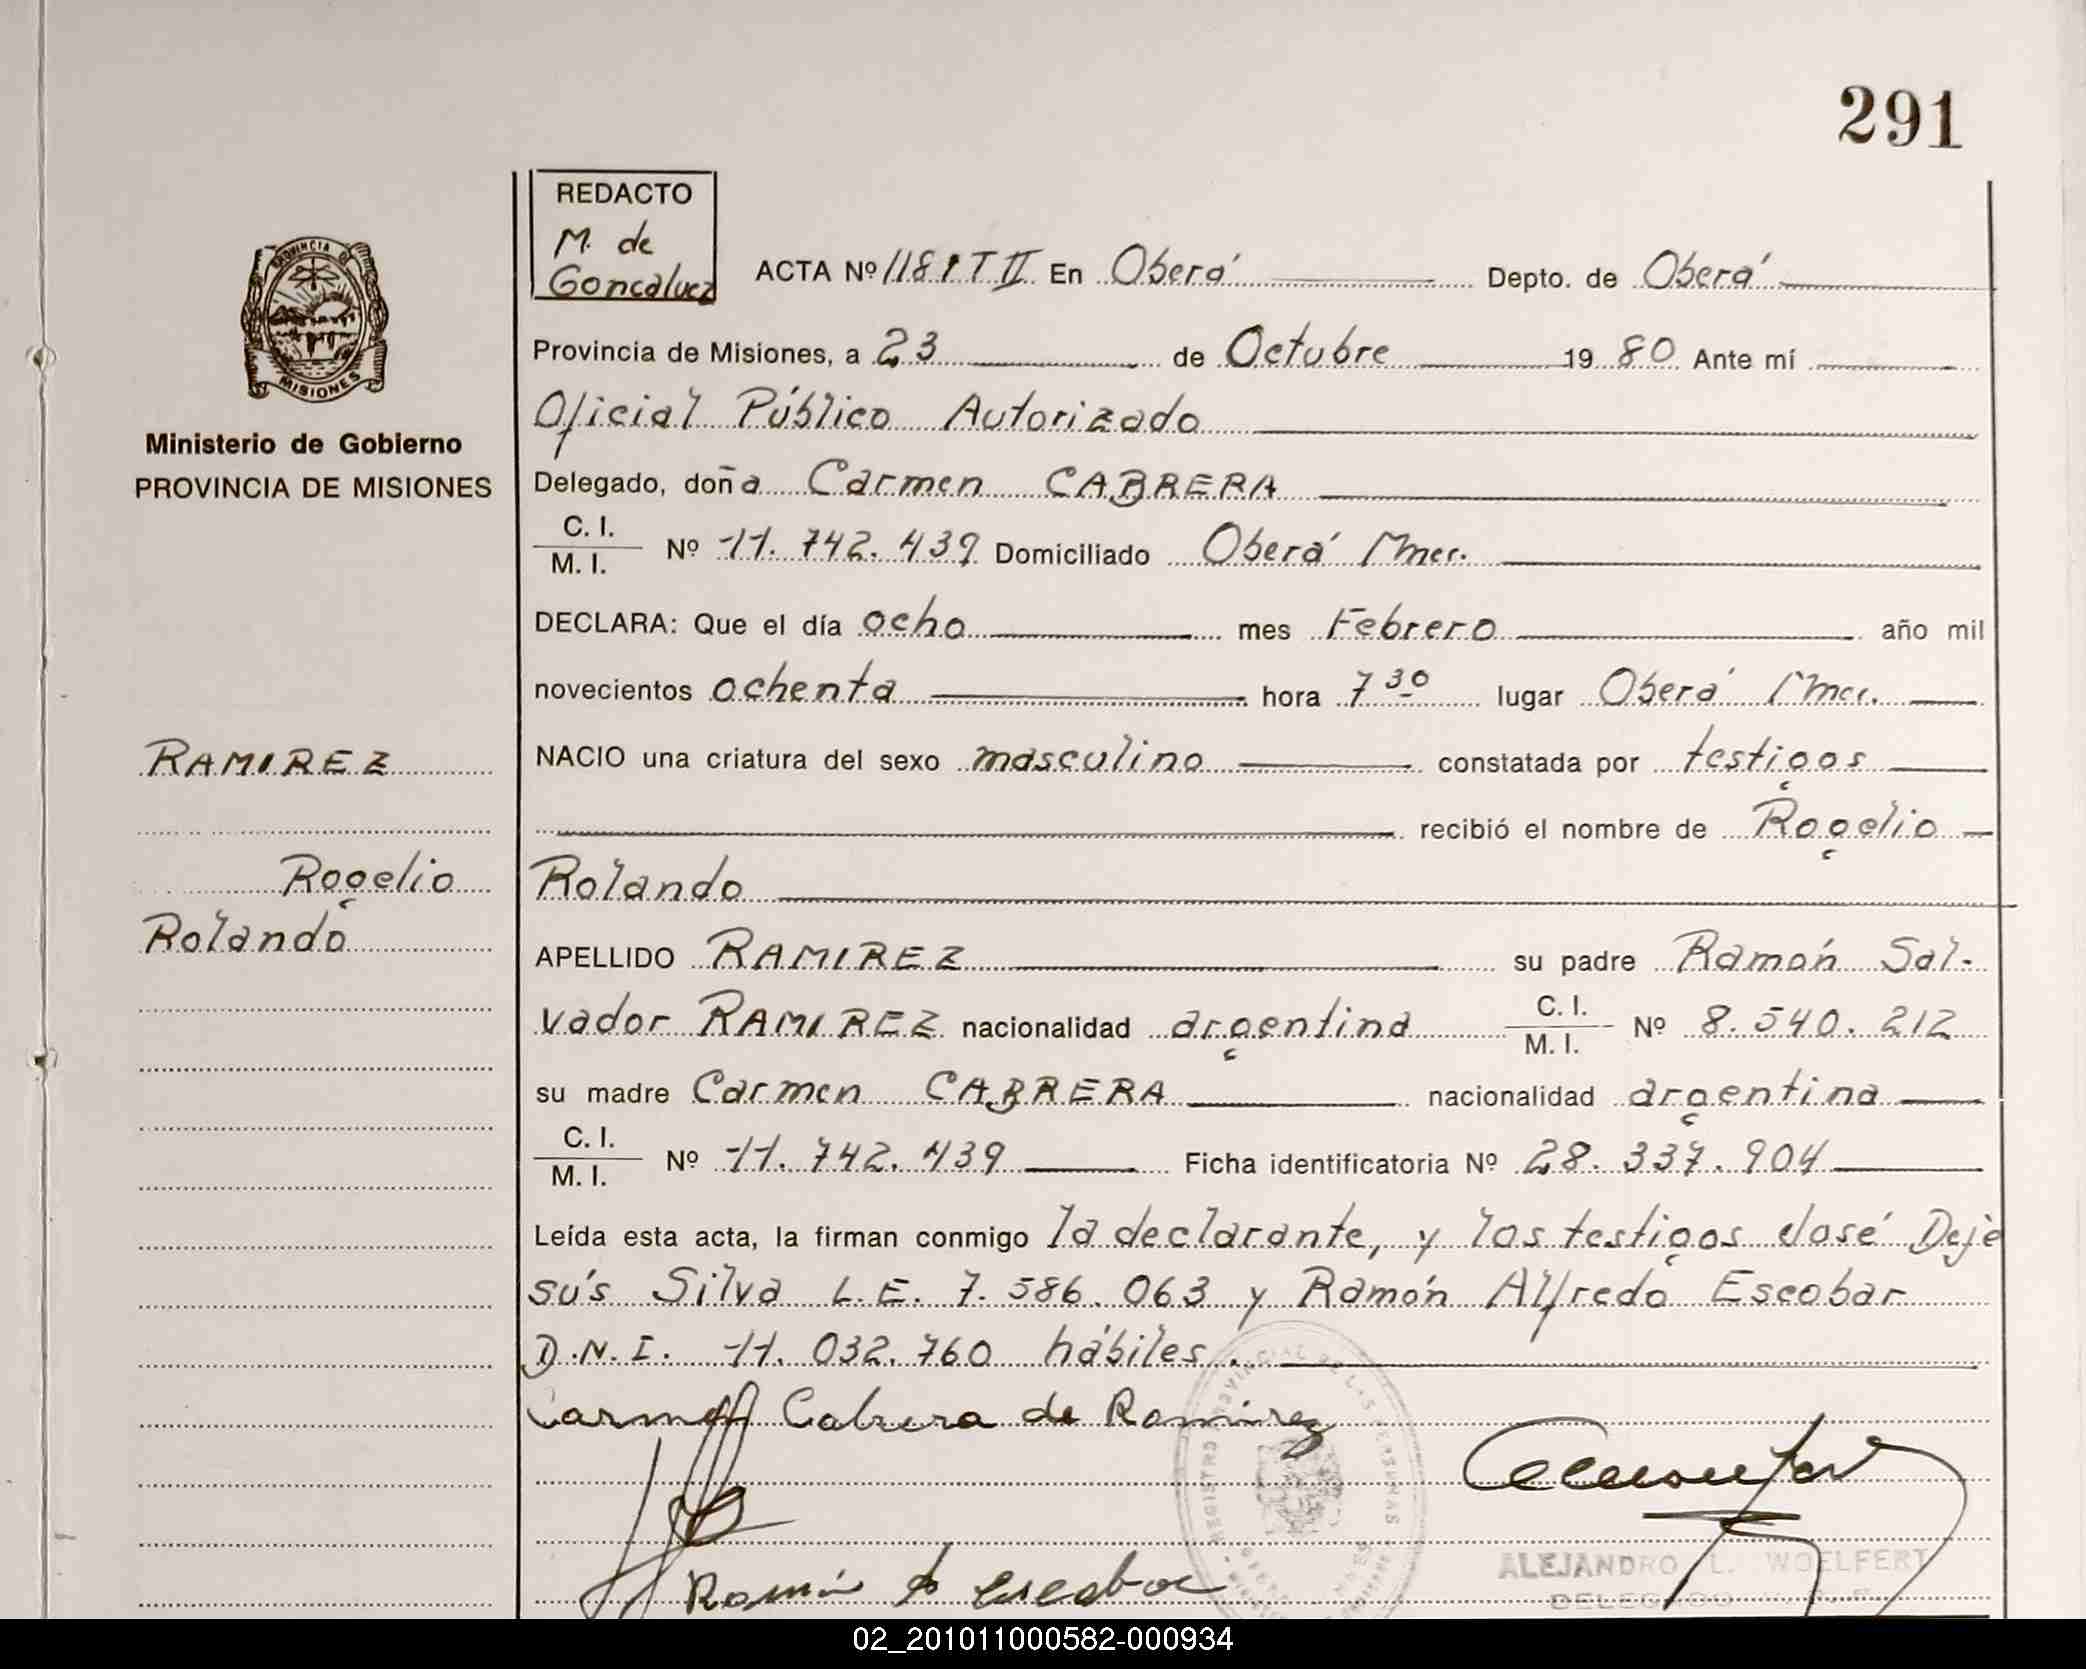 291
REDACTO
M. de
Goncalvez
ACTA Nº 1181 T II En Oberá Depto. de Oberá
Provincia de Misiones, a 23 de Octubre 1980 Ante mí
Oficial Público Autorizado
PROVINCIA DE
MISIONES
Ministerio de Gobierno
PROVINCIA DE MISIONES
Delegado, doña Carmen CABRERA
C. I.
M. I. Nº 11.742.439 Domiciliado Oberá Mnes.
DECLARA: Que el día ocho mes Febrero año mil
novecientos ochenta hora 7 30 lugar Oberá Mnes.
RAMIREZ
NACIO una criatura del sexo masculino constatada por testigos
recibió el nombre de Rogelio
Rogelio
Rolando
Rolando
APELLIDO RAMIREZ su padre Ramón Sal-
vador RAMIREZ nacionalidad argentina C. I. M. I. Nº 8.540.212
su madre Carmen CABRERA nacionalidad argentina
C. I.
M. I. Nº 11.742.439 Ficha identificatoria Nº 28.337.904
Leída esta acta, la firman conmigo la declarante, y los testigos José Deje
sús Silva L.E. 7.586.063 y Ramón Alfredo Escobar
D.N.I. 11.032.760 hábiles.
Carmen Cabrera de Ramirez
REGISTRO PROVINCIAL DE LAS PERSONAS
Ramón A Escobar
ALEJANDRO L. WOELFERT
DELEGADO
02_201011000582-000934